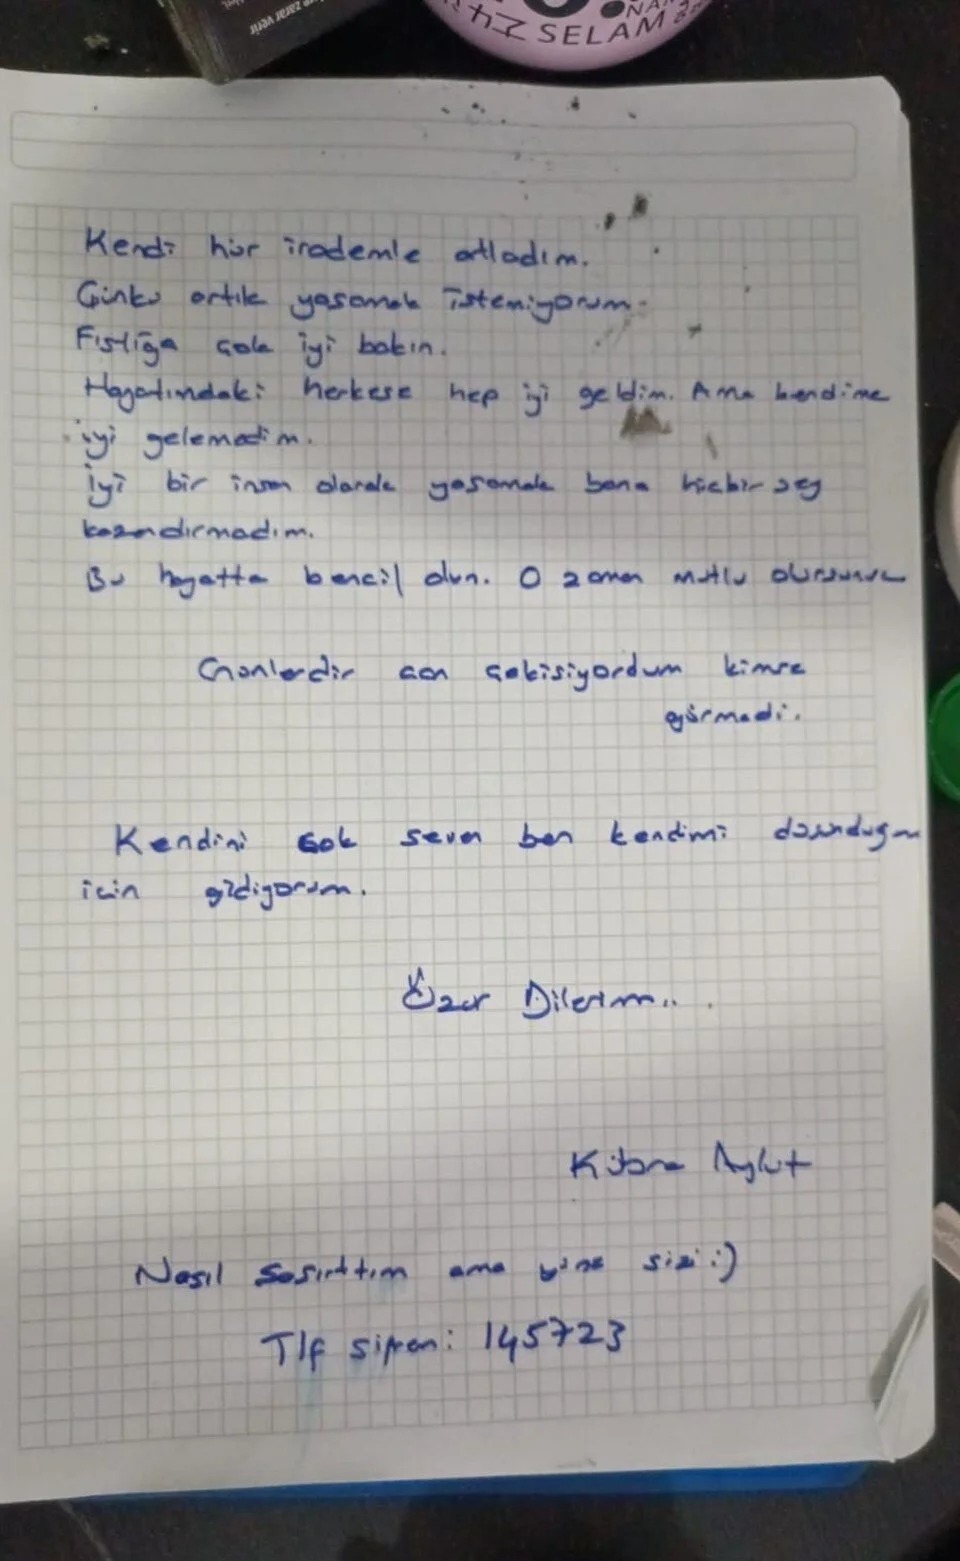 NAM
SELAM
zarar verir
Kendi hür irademle atladım.
Çünkü artık yaşamak istemiyorum.
Fıstığa çok iyi bakın.
Hayatımdaki herkese hep iyi geldim. Ama kendime
iyi gelemedim.
İyi bir insan olarak yaşamak bana hiçbir şey
kazandırmadım.
Bu hayatta bencil olun. O zaman mutlu olursunuz
Günlerdir can çekişiyordum kimse
görmedi.
Kendini çok seven ben kendimi düşündüğüm
için gidiyorum.
Özür Dilerim...
Kübra Aykut
Nasıl şaşırttım ama yine sizi :)
Tlf şifrem: 145723